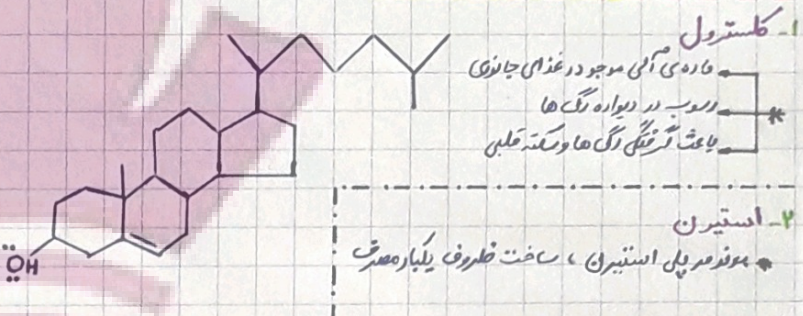 ۱- کلسترول
ماده‌ی آلی موجود در غذاهای جانوری
رسوب در دیواره رگ ها
* باعث گرفتگی رگ ها و سکته قلبی
۲- استیرن
* مونومر پلی استیرن ، ساخت ظروف یکبار مصرف
ÖH